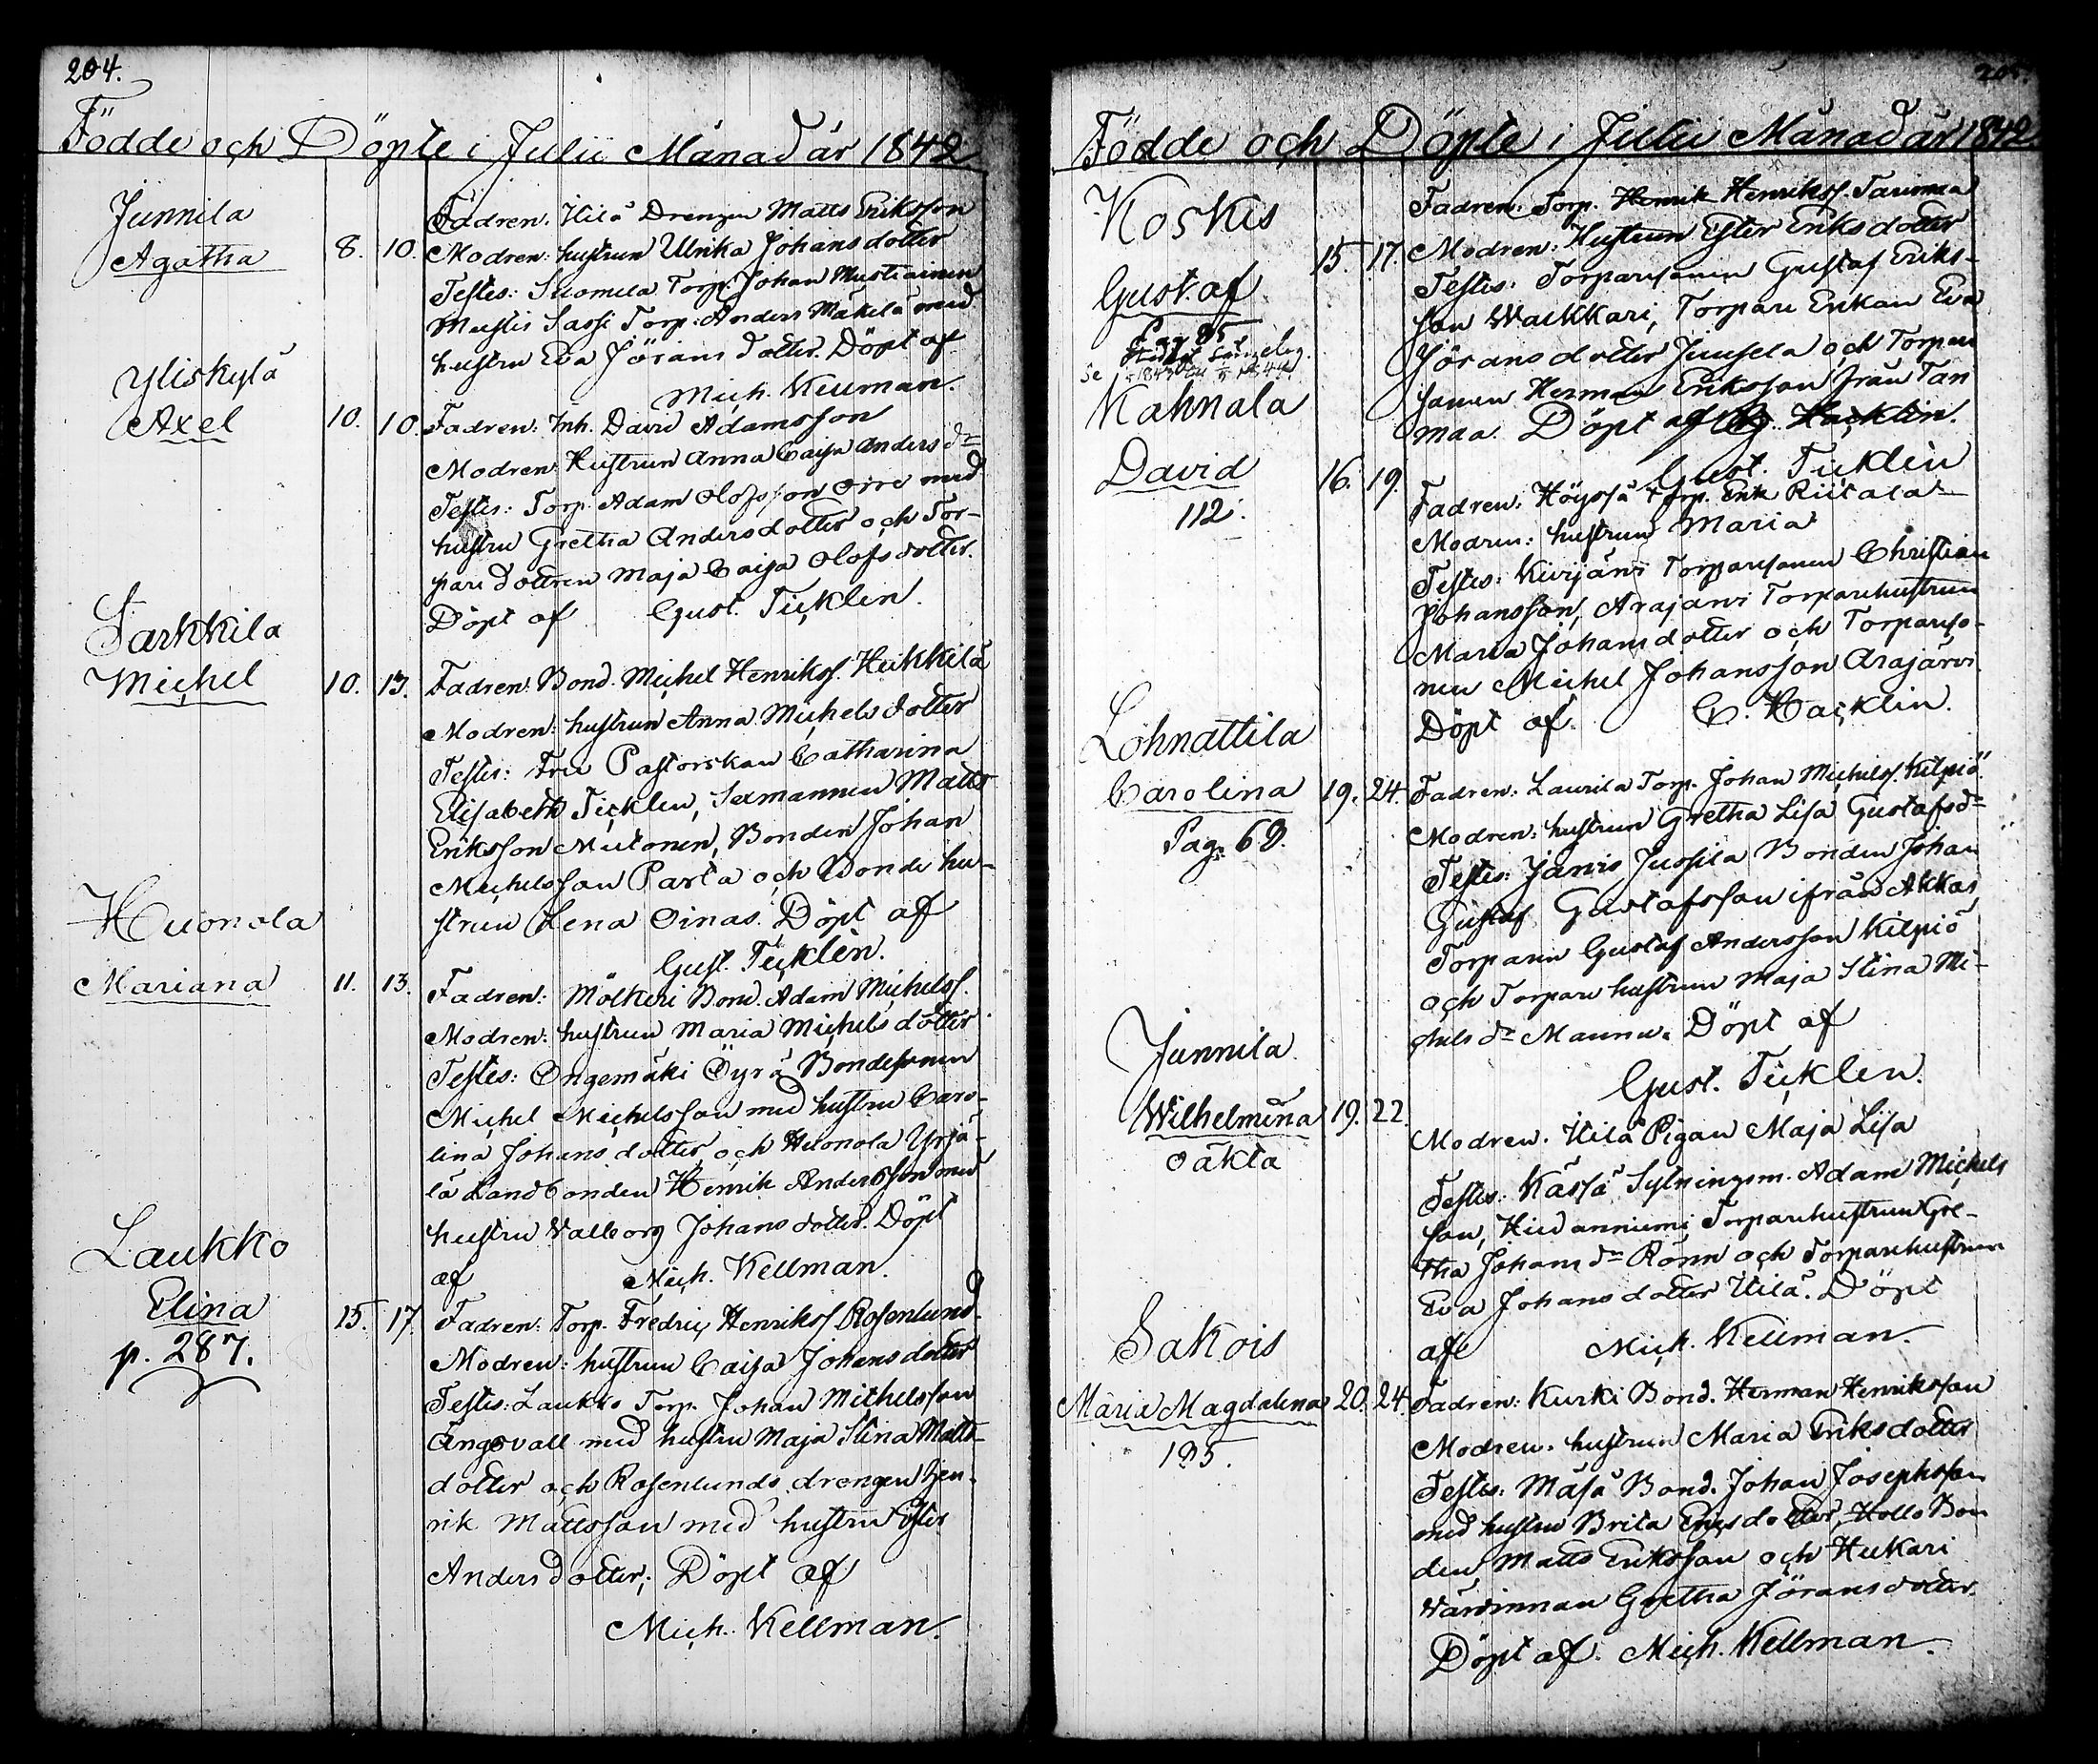 204.
Födde och Döpte i Julii Månad år 1842
Junnila
Agatha
8. 10.
Fadren: Uila Drengen Matts Eriksson
Modren: hustrun Ulrika Johansdotter
Testes: Suomela Torp. Johan Mustiainen
Mustis Sassi Torp: Anders Mäkelä med
hustru Eva Jöransdotter. Döpt af
Mich. Kellman.
Yliskylä
Axel
10. 10.
Fadren: Inh. David Adamsson
Modren: Hustrun Anna Caisa Andersdr
Testes: Torp. Adam Olofsson Orre med
hustru Gretha Andersdotter och Tor-
paredottren Maja Caisa Olofsdotter.
Döpt af Gust. Ticklen.
Tarkkila
Michel
10. 13.
Fadren: Bond. Michel Henrikss. Heikkilä
Modren: hustrun Anna Michelsdotter
Testes: Fru Pastorskan Catharina
Elisabeth Ticklen, Sexmannen Matts
Eriksson Mutonen, Bonden Johan
Michelsson Parta och Bonde hu-
strun Lena Oinas. Döpt af
Gust. Ticklèn.
Huonola
Mariana
11. 13.
Fadren: Mölkeri Bond. Adam Michelss.
Modren: hustrun Maria Michelsdotter
Testes: Ongemäki Öyrä Bondesonen
Michel Michelsson med hustru Caro-
lina Johansdotter och Huonola Yrjä-
lä Landbonden Henrik Andersson med
hustru Walborg Johansdotter. Döpt
af Mich. Kellman.
Laukko
Elina
p. 287.
15. 17.
Fadren: Torp. Fredric Henrikss. Rosenlund.
Modren: hustrun Caisa Johansdotter
Testes: Laukko Torp. Johan Michelsson
Ängsvall med hustru Maja Stina Matts-
dotter och Rosenlunds drengen Hen-
rik Mattsson med hustru Ester
Andersdotter; Döpt af
Mich. Kellman.
205.
Födde och Döpte i Julii Månad år 1842.
Koskis
Gustaf
Pag 85
Se
Kahnala
15. 17.
Fadren: Torp. Henrik Henrikss. Tanmaa
Modren: Hustrun Ester Eriksdotter
Testes: Torparesonen Gustaf Eriks-
son Wackkari, Torpare Enkan Eva
Jöransdotter Juusela och Torpare
sonen Herman Eriksson från Tan
maa. Döpt af C. Hacklin.
Gust. Ticklèn
David
112.
16. 19.
Fadren: Höyssä Torp. Erik Riitala
Modren: hustrun Maria
Testes: Kivijärvi Torparesonen Christian
Johansson, Arajärvi Torparehustrun
Maria Johansdotter och Torpareso-
nen Michel Johansson Arajärvi
Döpt af. C. Hacklin.
Lohnattila
Carolina
Pag. 68.
19. 24.
Fadren: Laurila Torp. Johan Michelss. Kilpiö.
Modren: hustrun Gretha Lisa Gustafsdr
Testes: Janis Jussila Bonden Johan
Gustaf Gustafsson ifrån Akkas,
Torparen Gustaf Andersson Kilpiö
och Torpare hustrun Maja Stina Mi-
chelsdr Maunu. Döpt af
Gust. Ticklen.
Junnila
Wilhelmina
oäkta
19. 22.
Modren. Uila Pigan Maja Lisa
Testes: Kässä Sytningsm. Adam Michels
son, Hiedanniemi Torparehustrun Gre-
tha Johansdr Rönn och Torparehustrun
Eva Johansdotter Uila. Döpt
af Mich. Kellman.
Sakois
Maria Magdalena
195.
20. 24.
Fadren: Kurki Bond. Herman Henriksson
Modren: hustrun Maria Eriksdotter
Testes: Mäsä Bond. Johan Josephsson
med hustru Brita Ericsdotter, Hollo Bon
den Matts Eriksson och Heikari
Värdinnan Gretha Jöransdotter.
Döpt af. Mich. Kellman.